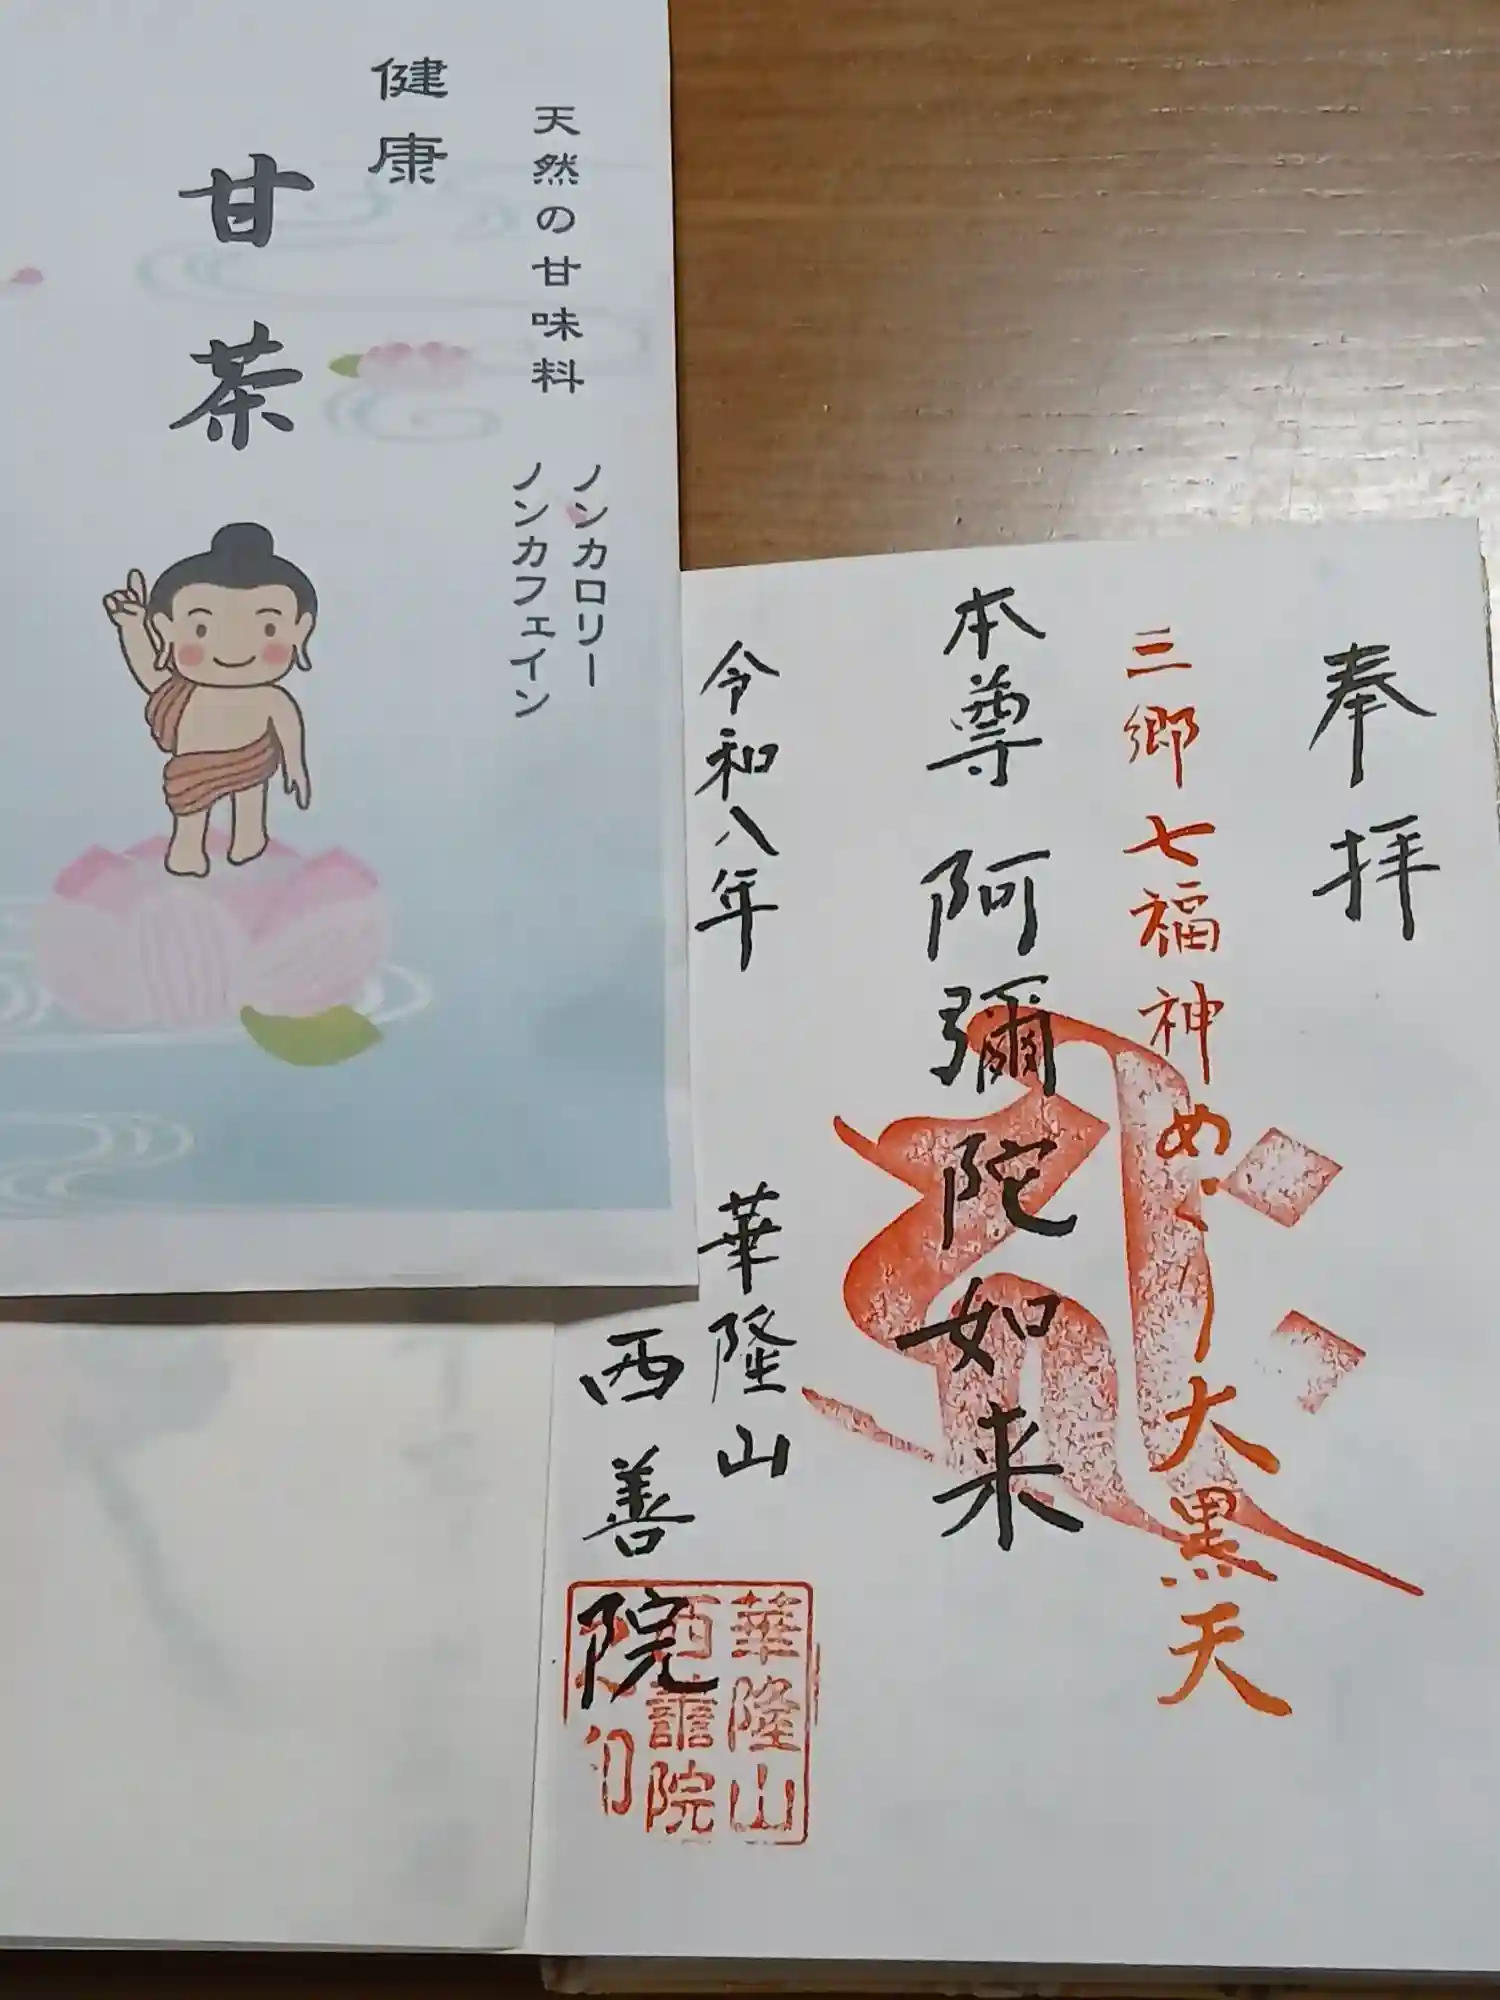 天然の甘味料
ノンカロリー
ノンカフェイン
健康
甘茶
奉拝
三郷七福神めぐり大黒天
本尊 阿彌陀如来
令和八年
華隆山
西善院
華隆山
西譱院